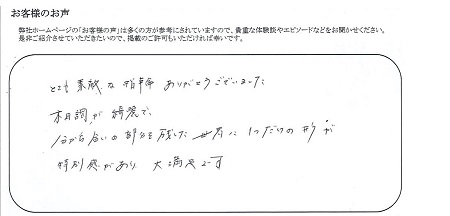 お客様のお声
弊社ホームページの「お客様の声」は多くの方が参考にされていますので、貴重な体験談やエピソードなどをお聞かせください。
是非ご紹介させていただきたいので、掲載のご許可もいただければ幸いです。
とても素敵な指輪ありがとうございました
木目調が綺麗で、
分かち合いの部分を残した世界に1つだけの形が
特別感があり、大満足です